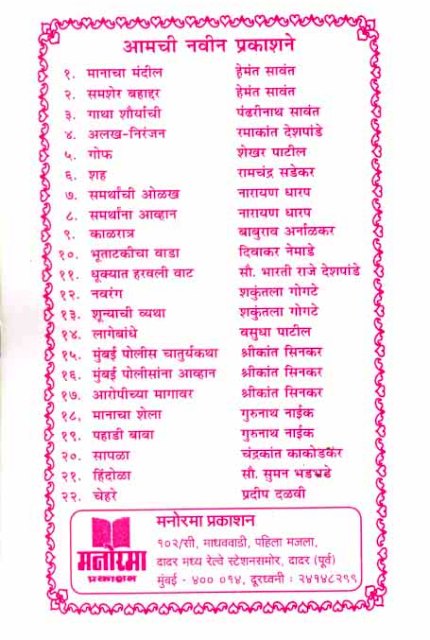 आमची नवीन प्रकाशने
१. मानाचा मंदील हेमंत सावंत
२. समशेर बहाद्दर हेमंत सावंत
३. गाथा शौर्याची पंढरीनाथ सावंत
४. अलख-निरंजन रमाकांत देशपांडे
५. गोफ शेखर पाटील
६. शह रामचंद्र सडेकर
७. समर्थांची ओळख नारायण धारप
८. समर्थांना आव्हान नारायण धारप
९. काळरात्र बाबुराव अर्नाळकर
१०. भूताटकीचा वाडा दिवाकर नेमाडे
११. धूक्यात हरवली वाट सौ. भारती राजे देशपांडे
१२. नवरंग शकुंतला गोगटे
१३. शून्याची व्यथा शकुंतला गोगटे
१४. लागेबांधे वसुधा पाटील
१५. मुंबई पोलीस चातुर्यकथा श्रीकांत सिनकर
१६. मुंबई पोलीसांना आव्हान श्रीकांत सिनकर
१७. आरोपीच्या मागावर श्रीकांत सिनकर
१८. मानाचा शेला गुरुनाथ नाईक
१९. पहाडी बाबा गुरुनाथ नाईक
२०. सापळा चंद्रकांत काकोडकर
२१. हिंदोळा सौ. सुमन भडभडे
२२. चेहरे प्रदीप दळवी
मनोरमा प्रकाशन
मनोरमा प्रकाशन
१०२/सी, माधववाडी, पहिला मजला,
दादर मध्य रेल्वे स्टेशनसमोर, दादर (पूर्व)
मुंबई - ४०० ०१४, दूरध्वनी : २४१४८२९९